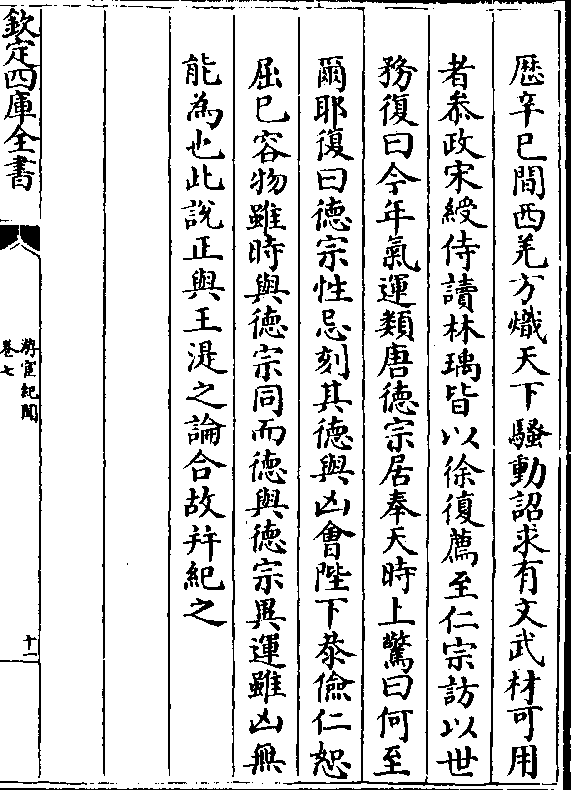 歴辛巳間西羌方熾天下騷動詔求有文武材可用
者叅政宋綬侍讀林瑀皆以徐復薦至仁宗訪以世
務復曰今年氣運類唐德宗居奉天時上驚曰何至
爾耶復曰德宗性忌刻其德與凶會陛下恭儉仁恕
屈已容物雖時與德宗同而德與德宗異運雖凶無
能為也此說正與王湜之論合故幷紀之
欽定四庫全書
游宦紀聞
卷七
十一